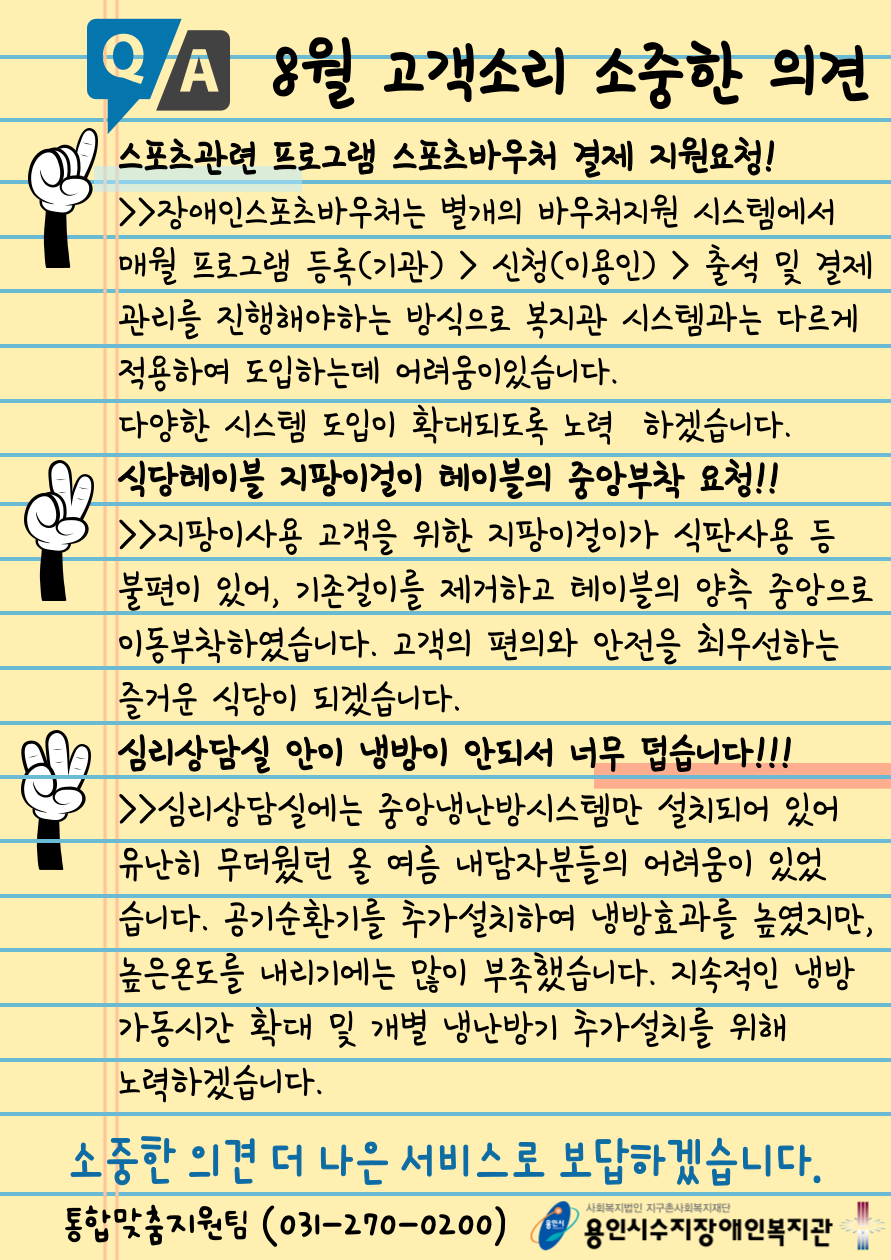 QA 8월 고객소리 소중한 의견
스포츠관련 프로그램 스포츠바우처 결제 지원요청!
>>장애인스포츠바우처는 별개의 바우처지원 시스템에서
매월 프로그램 등록(기관) > 신청(이용인) > 출석 및 결제
관리를 진행해야하는 방식으로 복지관 시스템과는 다르게
적용하여 도입하는데 어려움이있습니다.
다양한 시스템 도입이 확대되도록 노력 하겠습니다.
식당테이블 지팡이걸이 테이블의 중앙부착 요청!!
>>지팡이사용 고객을 위한 지팡이걸이가 식판사용 등
불편이 있어, 기존걸이를 제거하고 테이블의 양측 중앙으로
이동부착하였습니다. 고객의 편의와 안전을 최우선하는
즐거운 식당이 되겠습니다.
심리상담실 안이 냉방이 안되서 너무 덥습니다!!!
>>심리상담실에는 중앙냉난방시스템만 설치되어 있어
유난히 무더웠던 올 여름 내담자분들의 어려움이 있었
습니다. 공기순환기를 추가설치하여 냉방효과를 높였지만,
높은온도를 내리기에는 많이 부족했습니다. 지속적인 냉방
가동시간 확대 및 개별 냉난방기 추가설치를 위해
노력하겠습니다.
소중한 의견 더 나은 서비스로 보답하겠습니다.
통합맞춤지원팀 (031-270-0200)
용인시
사회복지법인 지구촌사회복지재단
용인시수지장애인복지관